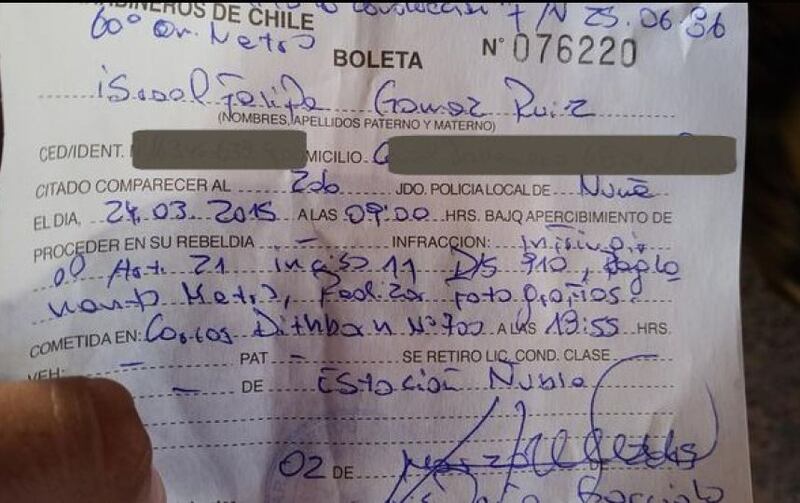 NEROS DE CHILE F/N 25.06.86
60° Metro
BOLETA N° 076220
Felipe Gomez Ruiz
(NOMBRES, APELLIDOS PATERNO Y MATERNO)
CED/IDENT. MICILIO.
CITADO COMPARECER AL 2do JDO. POLICIA LOCAL DE Ñuñ
EL DIA, 24.03.2015 A LAS 09:00 HRS. BAJO APERCIBIMIENTO DE
PROCEDER EN SU REBELDIA - INFRACCION:
Art. 21 inciso 11 D/S 910,
Metro, Realizar fotografias.
COMETIDA EN: Carlos N°700 A LAS 19:55 HRS.
VEH: - PAT - SE RETIRO LIC. COND. CLASE
- DE Estación Ñuble
02 DE Marzo